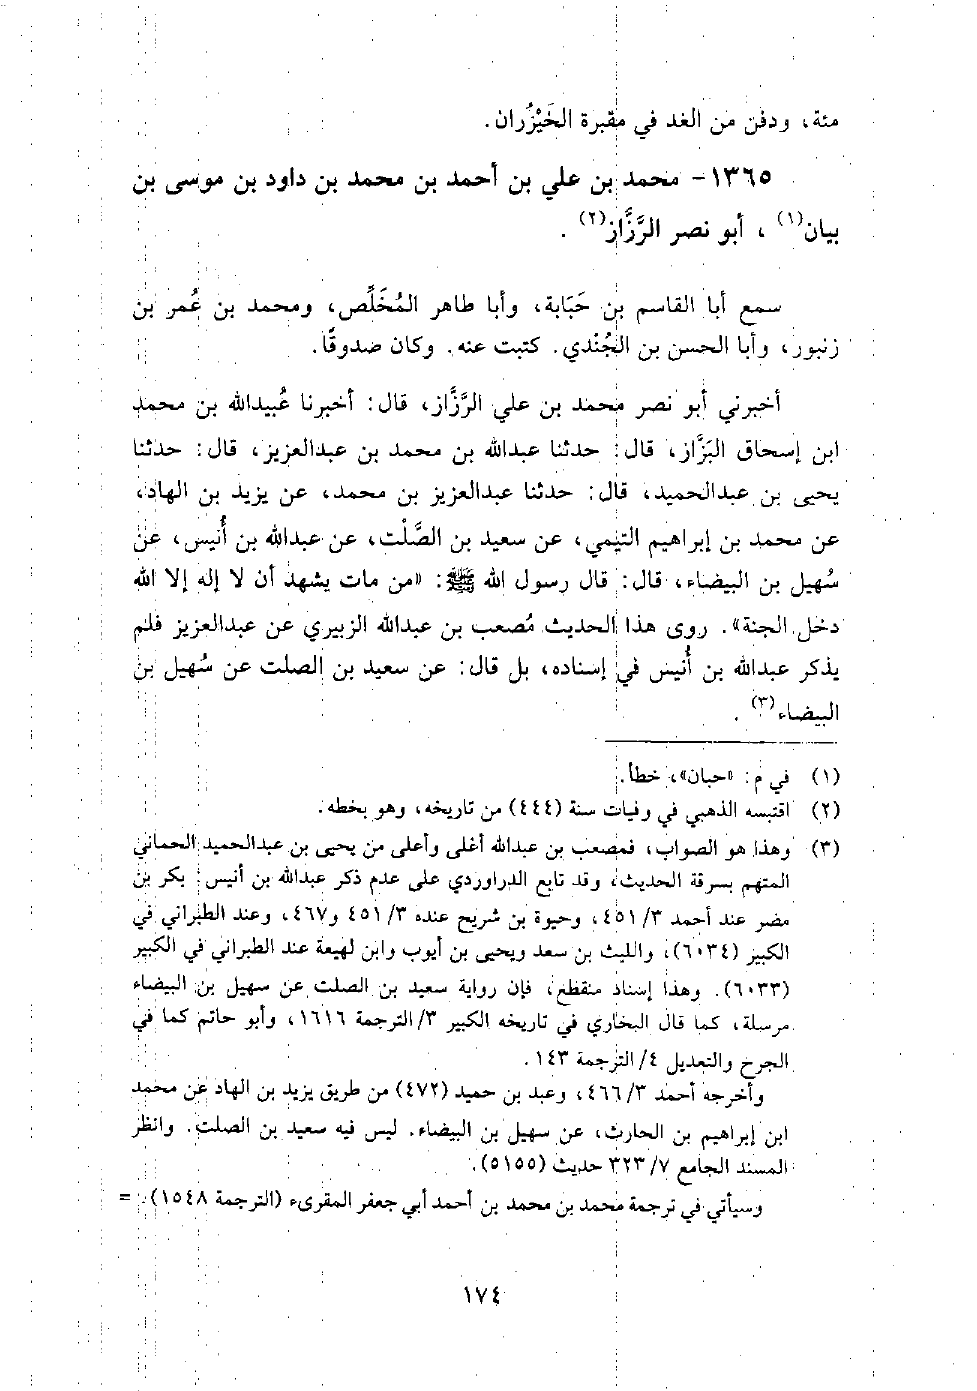 مئة، ودفن من الغد في مقبرة الخَيْزُران.
١٣٦٥- محمد بن علي بن أحمد بن محمد بن داود بن موسى بن
بيان(١) ، أبو نصر الرَّزَّاز(٢) .
سمع أبا القاسم بن حَبَابة، وأبا طاهر المُخَلِّص، ومحمد بن عُمر بن
زنبور، وأبا الحسن بن الجُنْدي. كتبت عنه. وكان صدوقًا.
أخبرني أبو نصر محمد بن علي الرَّزَّاز، قال: أخبرنا عُبيدالله بن محمد
ابن إسحاق البَزَّاز، قال: حدثنا عبدالله بن محمد بن عبدالعزيز، قال: حدثنا
يحيى بن عبدالحميد، قال: حدثنا عبدالعزيز بن محمد، عن يزيد بن الهاد،
عن محمد بن إبراهيم التيمي، عن سعيد بن الصَّلْت، عن عبدالله بن أُنيس، عن
سُهيل بن البيضاء، قال: قال رسول الله ﷺ: «من مات يشهد أن لا إله إلا الله
دخل الجنة». روى هذا الحديث مُصعب بن عبدالله الزبيري عن عبدالعزيز فلم
يذكر عبدالله بن أُنيس في إسناده، بل قال: عن سعيد بن الصلت عن سُهيل بن
البيضاء(٣) .
(١) في م: «حبان»، خطأ.
(٢) اقتبسه الذهبي في وفيات سنة (٤٤٤) من تاريخه، وهو بخطه.
(٣) وهذا هو الصواب، فمصعب بن عبدالله أغلى وأعلى من يحيى بن عبدالحميد الحماني
المتهم بسرقة الحديث، وقد تابع الدراوردي على عدم ذكر عبدالله بن أنيس: بكر بن
مضر عند أحمد ٣/ ٤٥١، وحيوة بن شريح عنده ٣/ ٤٥١ و٤٦٧، وعند الطبراني في
الكبير (٦٠٣٤)، والليث بن سعد ويحيى بن أيوب وابن لهيعة عند الطبراني في الكبير
(٦٠٣٣). وهذا إسناد منقطع، فإن رواية سعيد بن الصلت عن سهيل بن البيضاء
مرسلة، كما قال البخاري في تاريخه الكبير ٣/ الترجمة ١٦١٦، وأبو حاتم كما في
الجرح والتعديل ٤/ الترجمة ١٤٣ .
وأخرجه أحمد ٣/ ٤٦٦، وعبد بن حميد (٤٧٢) من طريق يزيد بن الهاد عن محمد
ابن إبراهيم بن الحارث، عن سهيل بن البيضاء. ليس فيه سعيد بن الصلت. وانظر
المسند الجامع ٧/ ٣٢٣ حديث (٥١٥٥).
وسيأتي في ترجمة محمد بن محمد بن أحمد أبي جعفر المقرىء (الترجمة ١٥٤٨). =
١٧٤